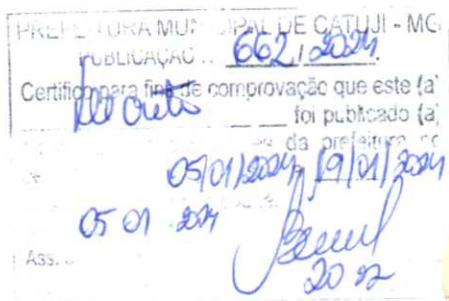 PREFEITURA MUNICIPAL DE CATUJI - MG
PUBLICAÇÃO 662/2024
Certifico para fins de comprovação que este (a)
Decreto foi publicado (a)
da prefeitura no
05/01/2024 19/01/2024
05 01 2024
Ass.